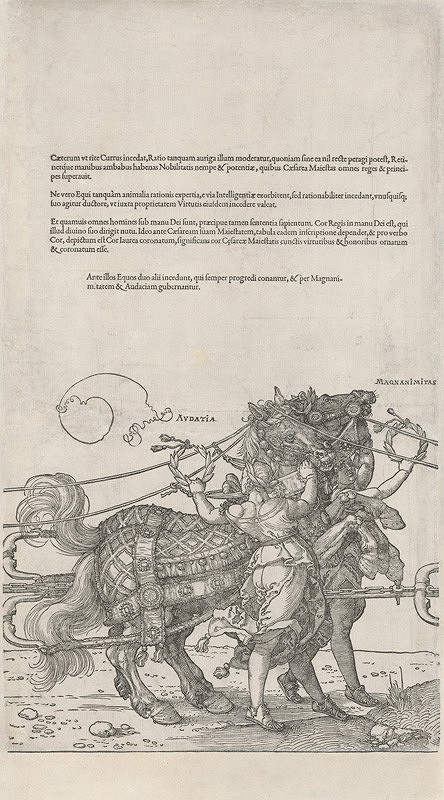 Cæterum vt rite Currus incedat, Ratio tanquam auriga illum moderatur, quoniam sine ea nil recte peragi potest, Reti-
netque manibus ambabus habenas Nobilitatis nempe & potentiæ, quibus Cæsarea Maiestas omnes reges & princi-
pes superauit.
Ne vero Equi tanquam animalia rationis expertia, e via Intelligentiæ exorbitent, sed rationabiliter incedant, vnusquisq;
suo agitur ductore, vt iuxta proprietatem Virtutis eiusdem incedere valeat.
Et quamuis omnes homines sub manu Dei sunt, præcipue tamen sententia sapientum. Cor Regis in manu Dei est, qui
illud diuino suo dirigit nutu. Ideo ante Cæsaream suam Maiestatem, tabula eadem inscriptione dependet, & pro verbo
Cor, depictum est Cor laurea coronatum, significans cor Cęsareæ Maiestatis cunctis virtutibus & honoribus ornatum
& coronatum esse.
Ante illos Equos duo alii incedunt, qui semper progredi conantur, & per Magnani-
mitatem & Audaciam gubernantur.
MAGNANIMITAS
AVDATIA